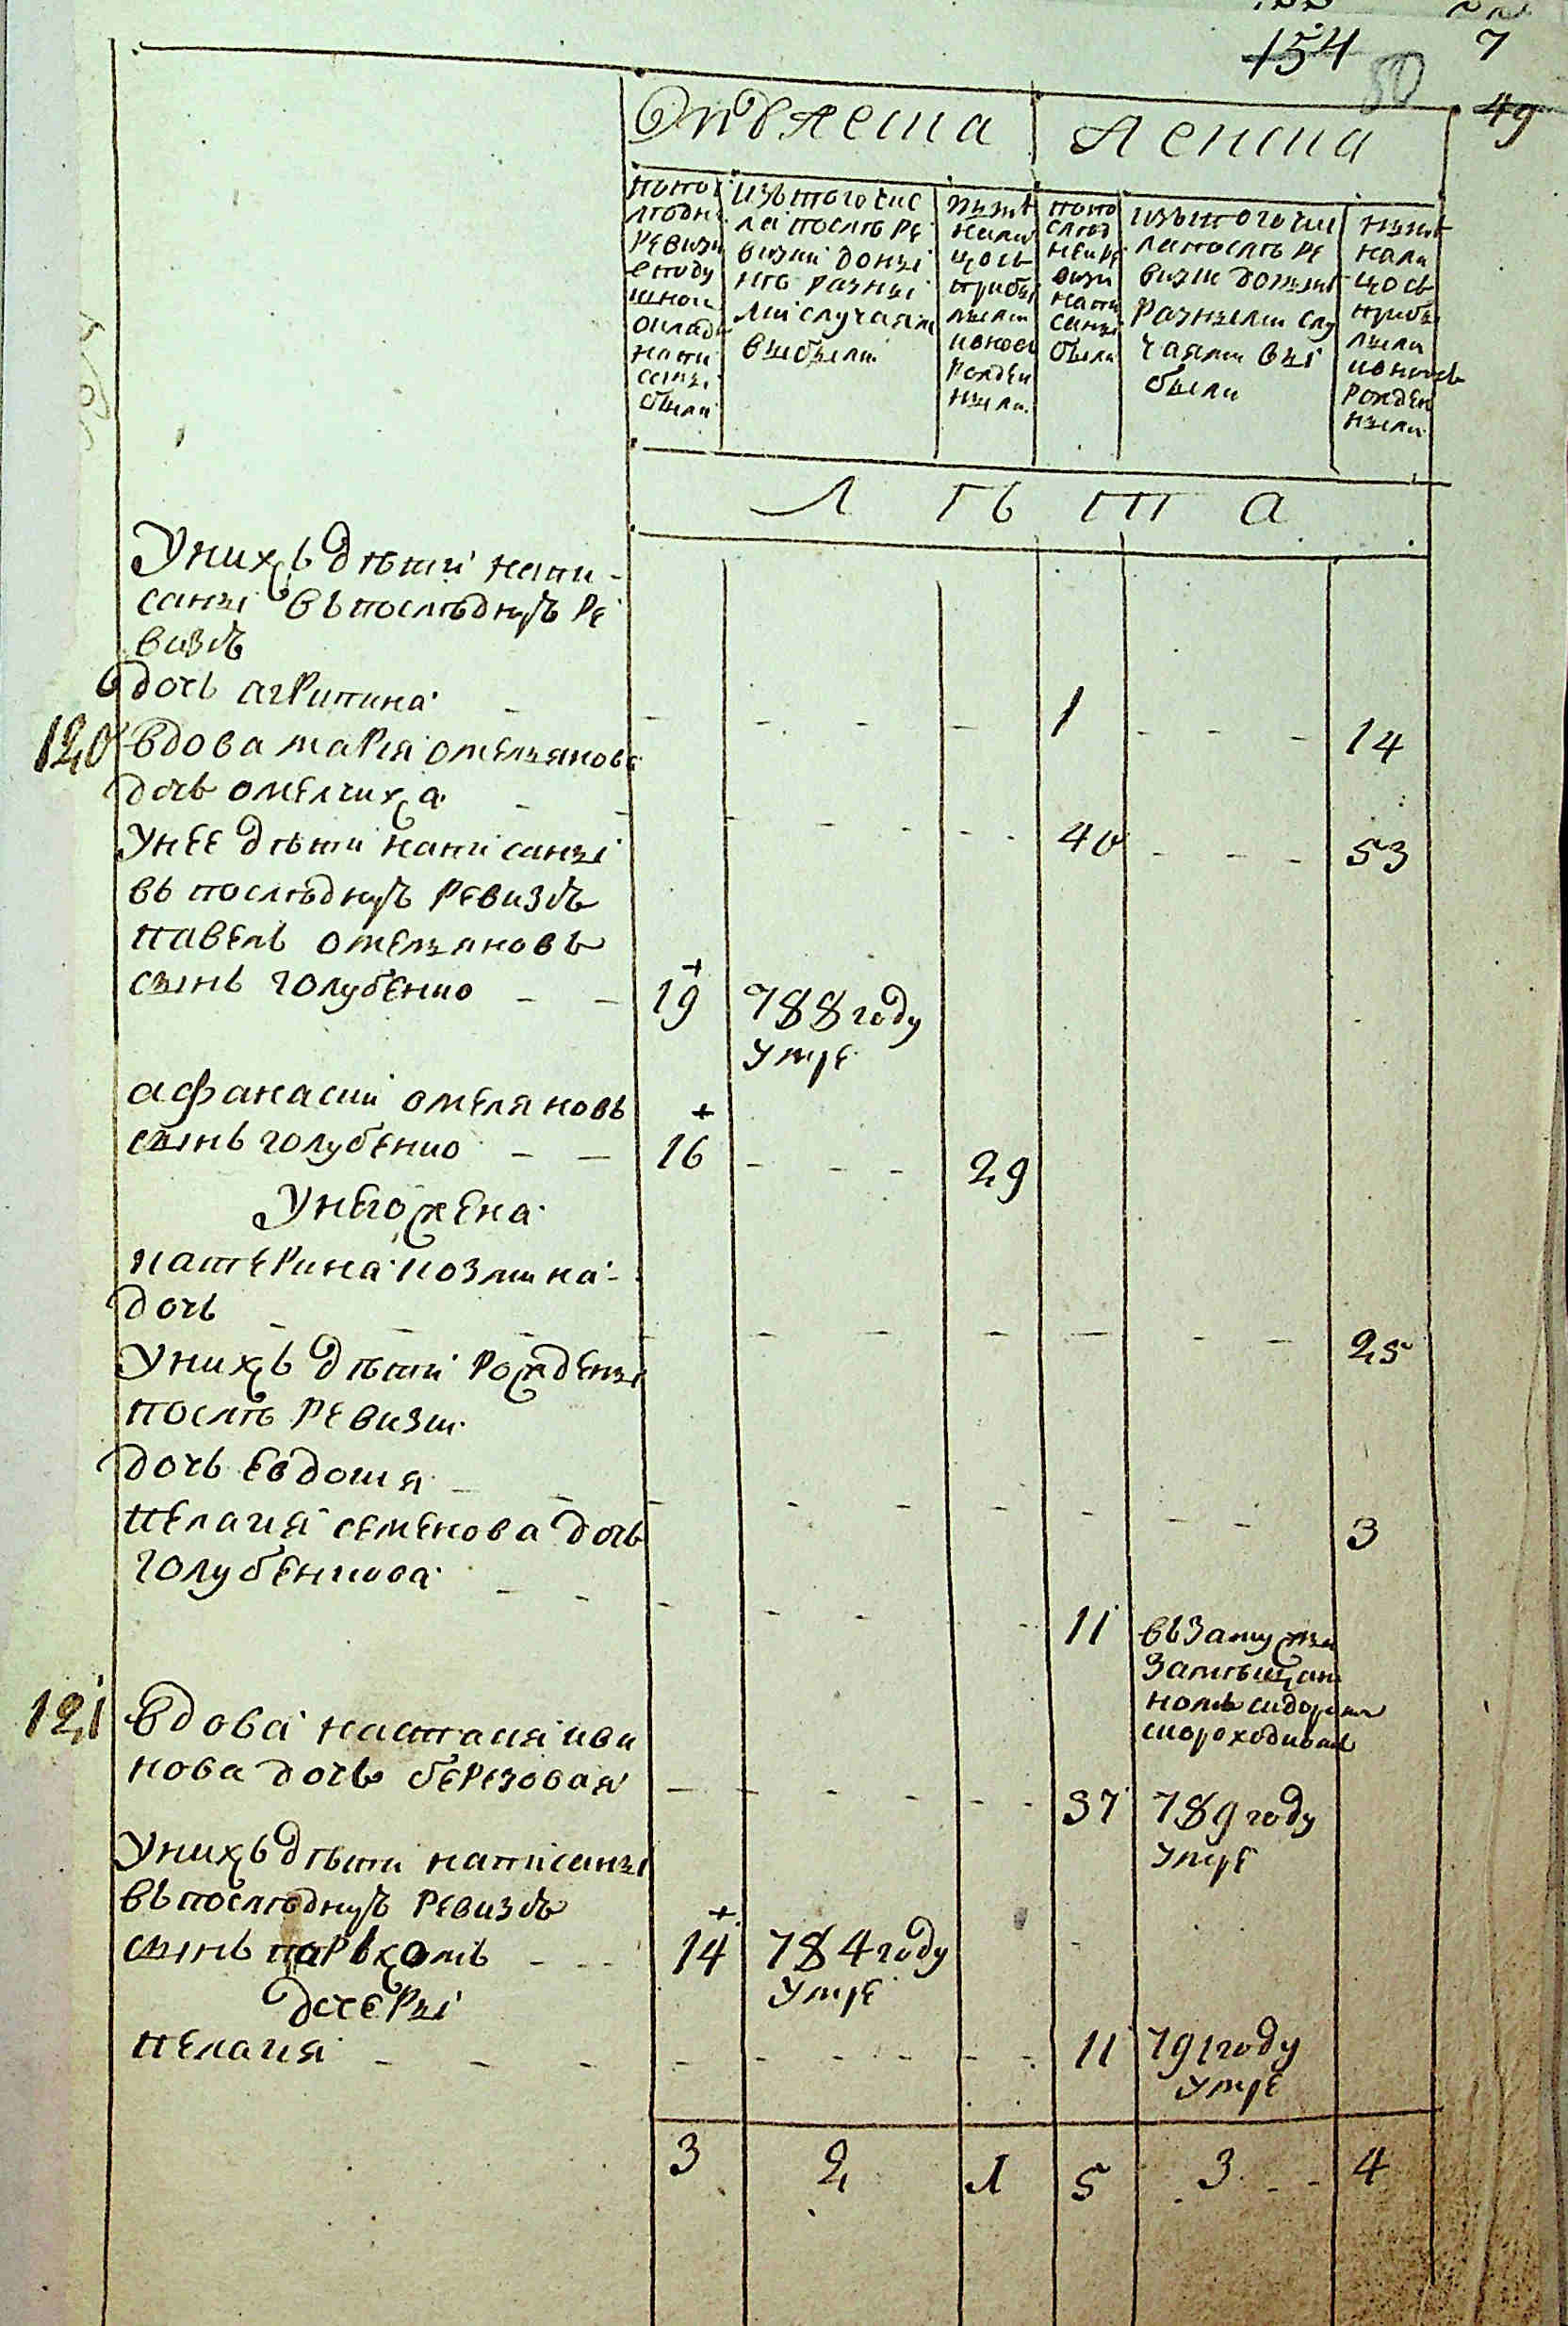 154 7
50 49
лѣта
По по
слѣдне
ревизи
изъ того чис
ла послѣ ре
визии доны
нѣ разны
ми случаями
выбыли
нынѣ
нали
цось
прибы
лыми
и вновь
рожден
ными
по по
слѣд
ней ре
визи
напи
саны
были
изъ того чис
ла послѣ ре
визии донынѣ
разными слу
чаями вы
были
нынѣ
нали
цось
прибы
лыми
и вновь
рожден
ными
Лѣта
У нихъ дѣти напи-
саны въ последнуѣ ре
визѣѣ
дочь агрипина 1 14
120 Вдова мария омельянова
дочь омелчиха 40 53
У нее дѣти написаны
въ последнуѣ ревизѣѣ
павелъ омельяновъ
сынъ голубенко 19 788 году
умре
афанасий омеляновъ
сынъ голубенко 16 29
У него жена
катерина козмина
дочь 25
У нихъ дѣти рождены
послѣ ревизии
дочь Евдокия 3
пелагия семенова дочь
голубенкова 11 въ замужи
за мѣщани
номъ сидоромъ
скороходовымъ
121 Вдова настасия ива
нова дочь березовая 37 789 году
умре
У нихъ дѣти написаны
въ последнуѣ ревизѣѣ
сынъ пархомъ 14 784 году
умре
дочеры
пелагия 11 791 году
умре
3 2 1 5 3 4